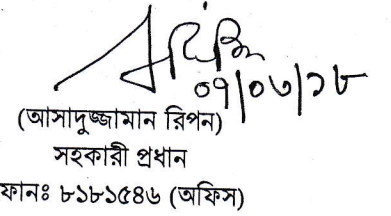 ০৭/০৬/১৮
(আসাদুজ্জামান রিপন)
সহকারী প্রধান
ফানঃ ৮১৮১৫৪৬ (অফিস)